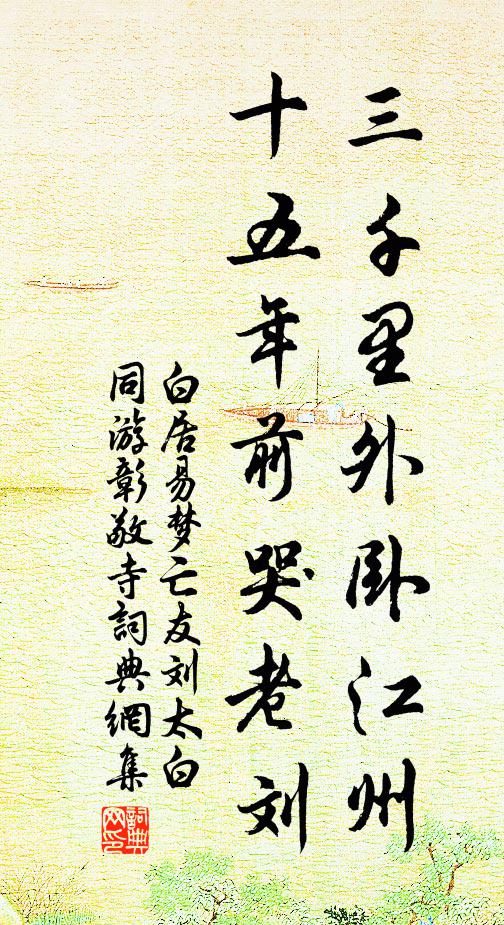 三千里外卧江州
十五年前哭老刘
白居易梦亡友刘太白
同游彰敬寺詞典網集
詞典
网印